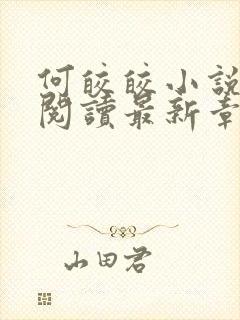 何皎皎小說
閱讀最新章
山田君